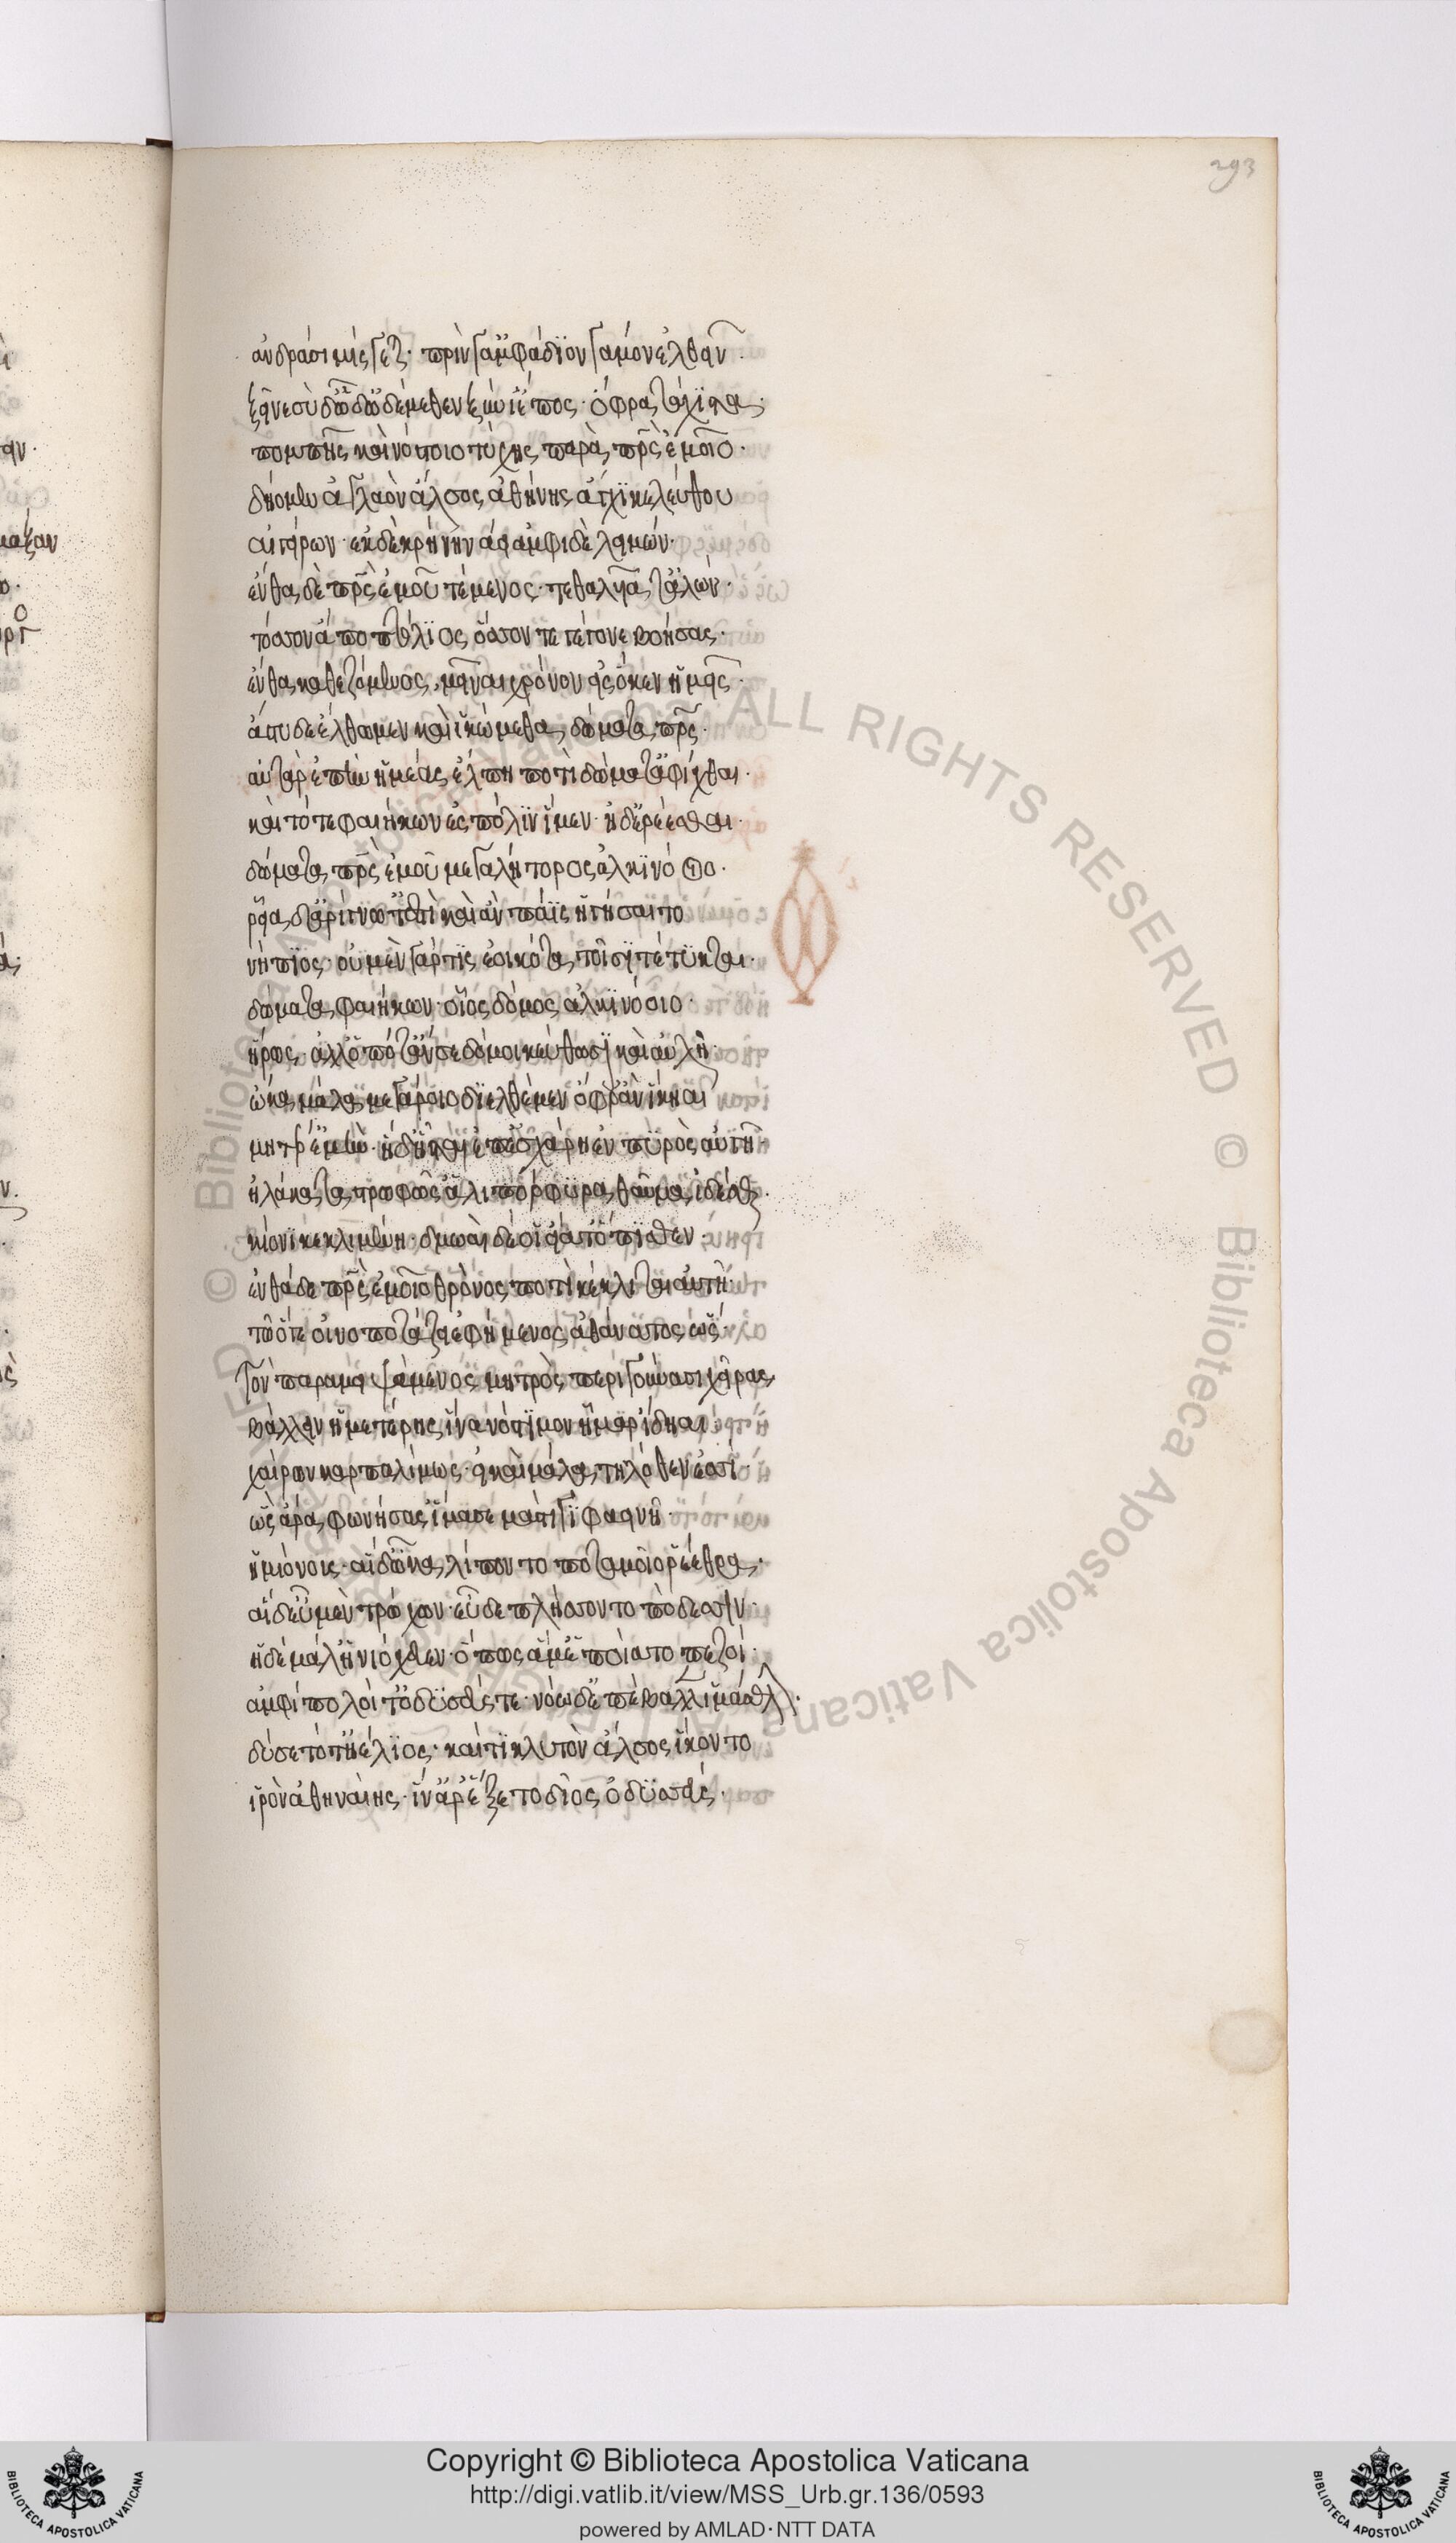 293
ἀνδράσι μίσγεται· πρὶν γ' ἀμφάδιον γάμον ἐλθεῖν·
ξεῖνε σὺ δ' ὧδ' ἐμέθεν ξυνίει ἔπος· ὄφρα τάχιστα
πομπῆς καὶ νόστοιο τύχης παρὰ πρς ἐμοῖο·
δήομεν ἀγλαὸν ἄλσος ἀθήνης ἄγχι κελεύθου
αἰγείρων· ἐν δὲ κρήνη νάει ἀμφὶ δὲ λειμών·
ἔνθα δὲ πρς ἐμοῦ τέμενος· τεθαλυῖα τ' ἀλωή·
τόσσον ἀπὸ πτόλιος ὅσσον τε γέγωνε βοήσας·
ἔνθα καθεζόμενος μεῖναι χρόνον εἰσόκεν ἡμεῖς
ἄστυδε ἔλθωμεν καὶ ἱκώμεθα δώματα πρς·
αὐτὰρ ἐπὴν ἡμέας ἔλπη ποτὶ δώματ' ἀφίχθαι·
καὶ τότε φαιήκων ἐς πόλιν ἴμεν· ἠδ' ἐρέεσθαι
δώματα πρς ἐμοῦ μεγαλήτορος ἀλκινόοιο·
ῥεῖα δ' ἀρίγνωτ' ἐστὶ καὶ ἂν πάϊς ἡγήσαιτο
νήπιος· οὐ μὲν γάρ τις ἐοικότα τοῖσι τέτυκται·
δώματα φαιήκων· οἷος δόμος ἀλκινόοιο·
ἥρως· ἀλλ' ὁπότ' ἄν σε δόμοι κεκύθωσι καὶ αὐλή·
ὦκα μάλα μεγάροιο διελθέμεν ὄφρ' ἂν ἵκηαι
μητέρ' ἐμήν· ἡ δ' ἧσται ἐπ' ἐσχάρη ἐν πυρὸς αὐγῆ·
ἠλάκατα στρωφῶσ' ἁλιπόρφυρα θαῦμα ἰδέσθαι·
κίονι κεκλιμένη· δμωαὶ δέ οἱ εἵατ' ὄπισθεν·
ἔνθα δὲ πρς ἐμοῖο θρόνος ποτικέκλιται αὐτῆ·
τῶ ὅτε οἰνοποτάζει ἐφήμενος ἀθάνατος ὥς·
τὸν παραμειψάμενος μητρὸς περὶ γούνασι χεῖρας
βάλλειν ἡμετέρης ἵνα νόστιμον ἦμαρ ἴδηαι
χαίρων καρπαλίμως· εἰ καὶ μάλα τηλόθεν ἐσσί·
ὣς ἄρα φωνήσας' ἵμασε μάστιγι φαεινῆ·
ἡμιόνους· αἱ δ' ὦκα λίπον ποταμοῖο ῥέεθρα·
αἱ δ' εὖ μὲν τρώχων· εὖ δὲ πλήσσοντο πόδεσσιν·
ἡ δὲ μάλ' ἡνιόχευεν· ὅπως ἅμ' ἕποιατο πεζοὶ·
ἀμφίπολοί τ' ὀδυσεύς τε· νόω δ' ἐπέβαλλεν ἱμάσθλην·
δύσετό τ' ἠέλιος· καί τοι κλυτὸν ἄλσος ἵκοντο
ἱρὸν ἀθηναίης· ἵν' ἄρ' ἕζετο δῖος ὀδυσσεύς·
© Biblioteca Apostolica Vaticana ALL RIGHTS RESERVED © Biblioteca Apostolica Vaticana
Copyright © Biblioteca Apostolica Vaticana
http://digi.vatlib.it/view/MSS_Urb.gr.136/0593
powered by AMLAD·NTT DATA
BIBLIOTECA APOSTOLICA VATICANA
BIBLIOTECA APOSTOLICA VATICANA